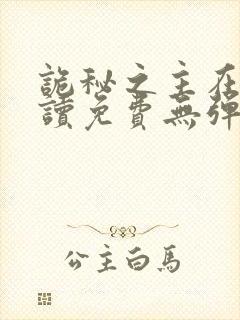 詭秘之主在
讀免費無彈
公主白馬